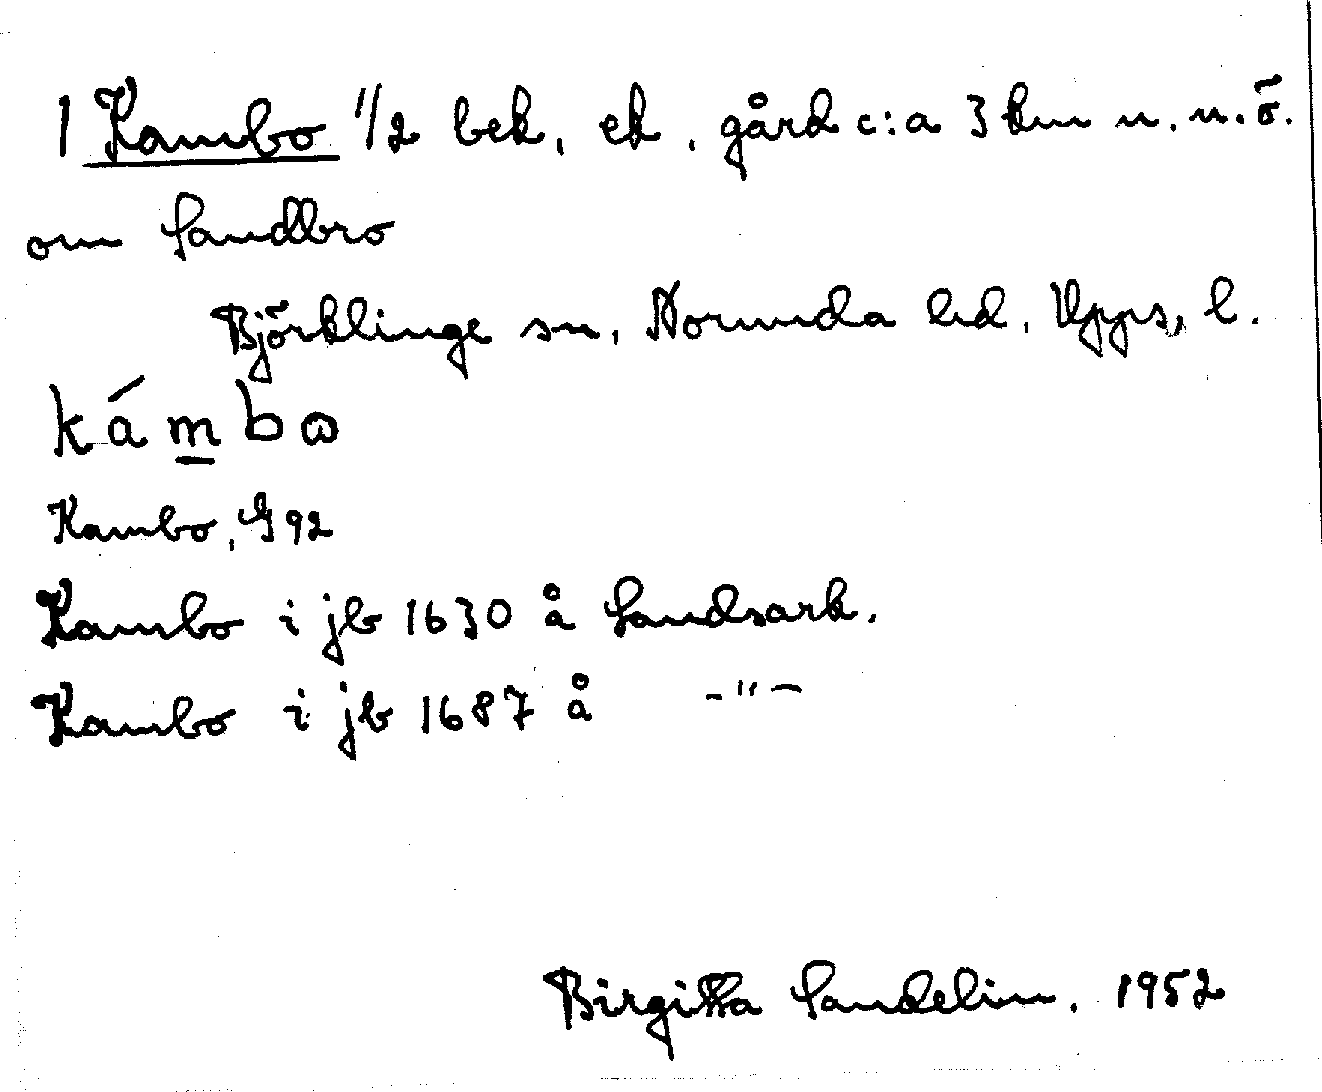 1 Kambo 1/2 bek, ek, gård c:a 3 km n. n.ö.
om Sandbro
Björklinge sn, Norunda hd, Upps, l.
kámbɷ
Kambo, G 92
Kambo i jb 1630 å Landsark.
Kambo i jb 1687 å -"-
Birgitta Sandelin. 1952